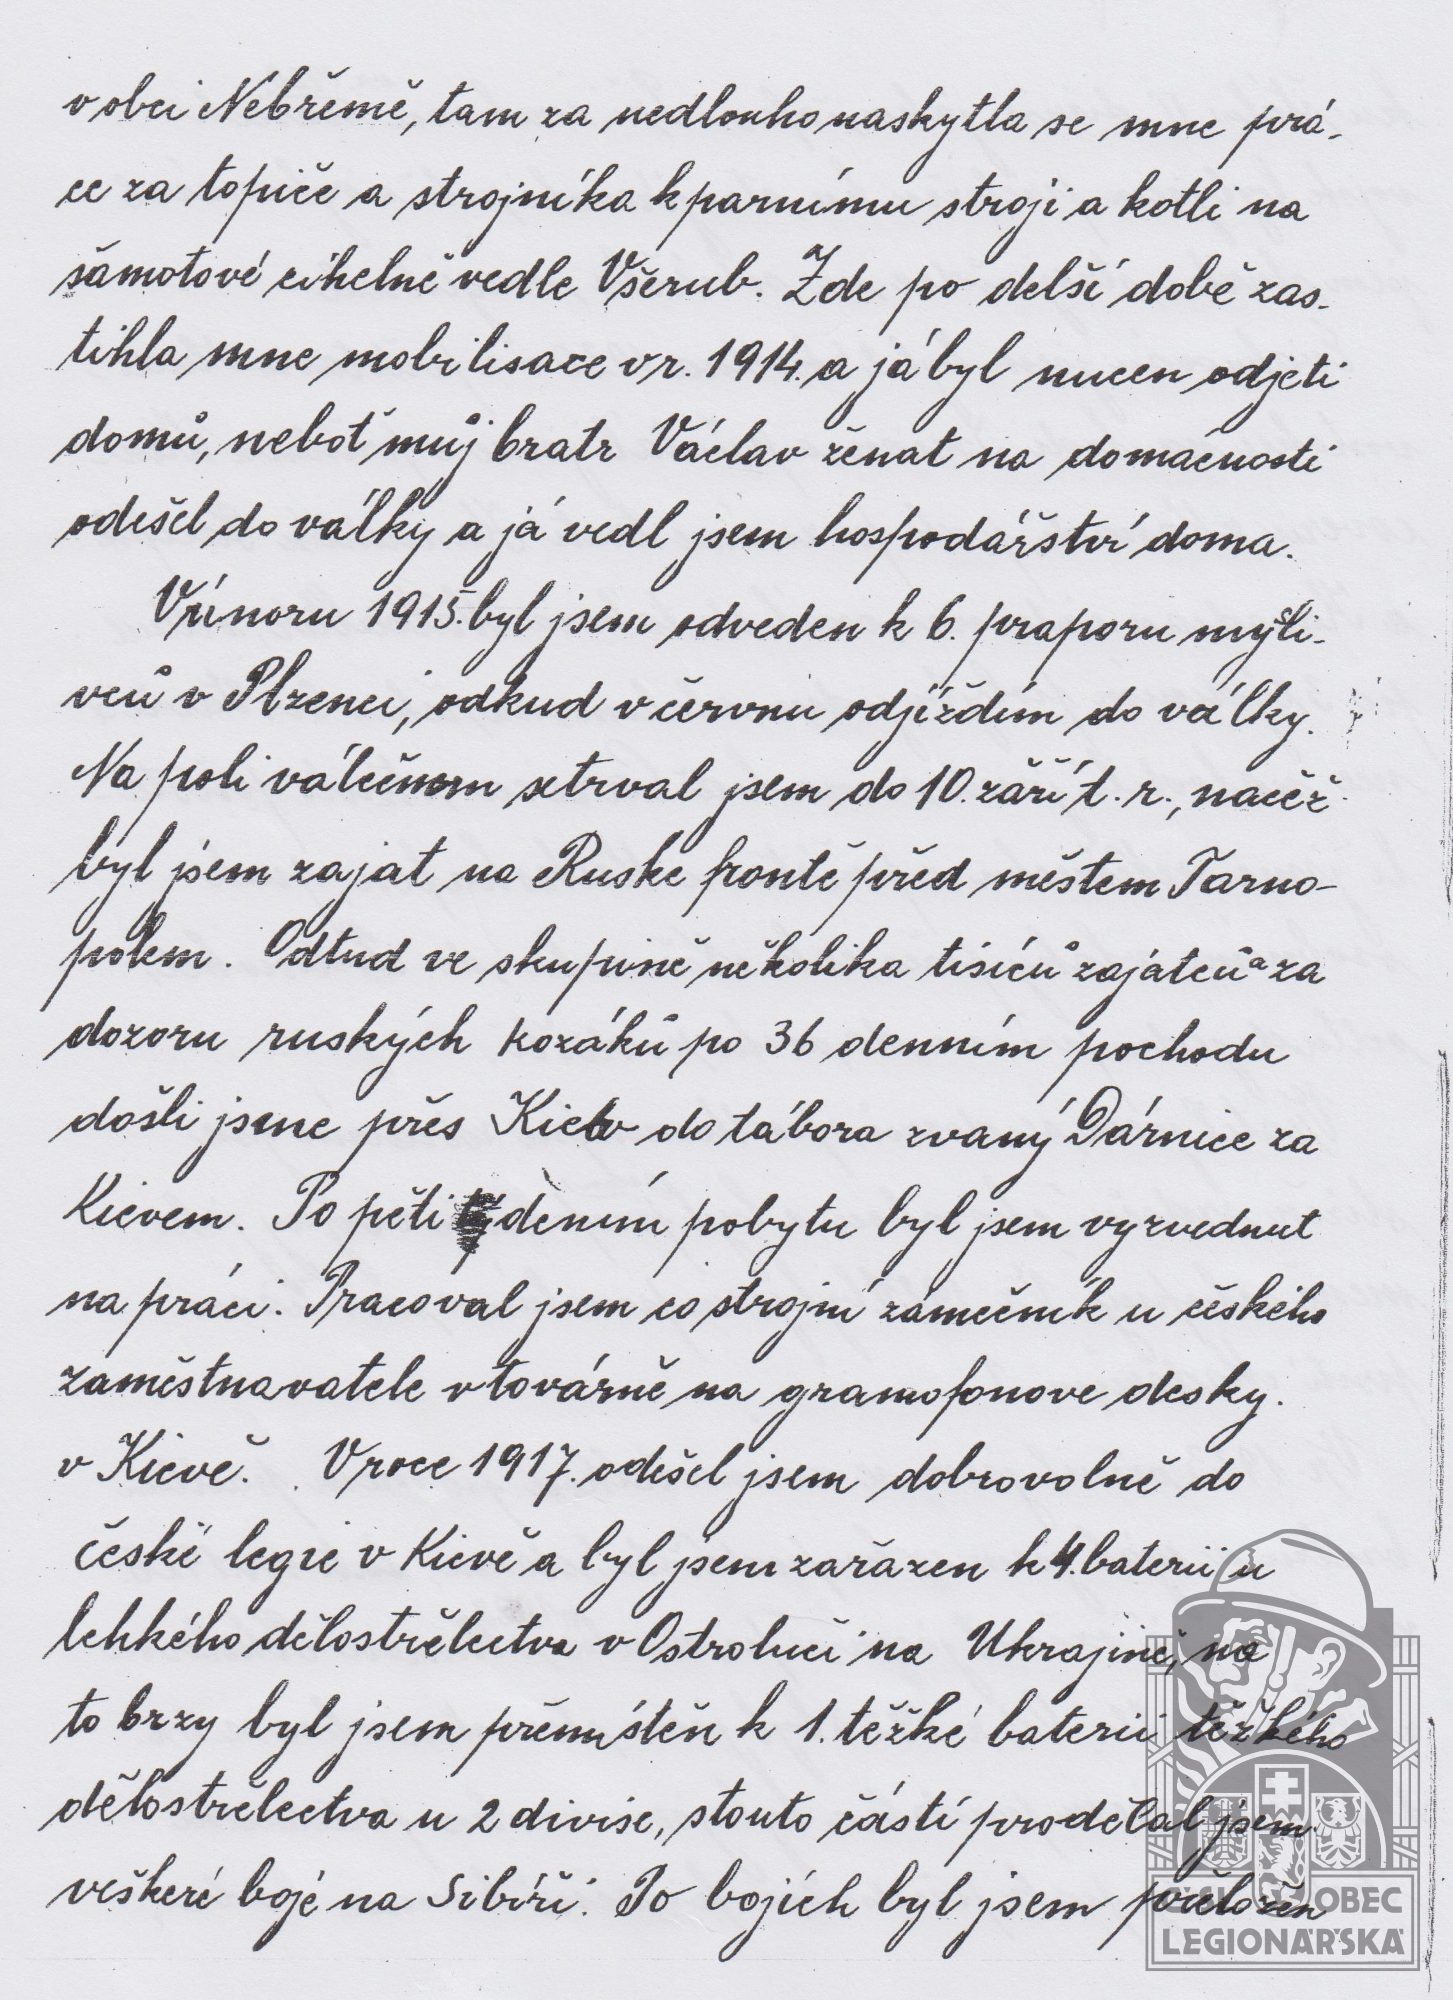 v obci Nebřemě, tam za nedlouho naskytla se mne prá-
ce za topiče a strojníka k parnímu stroji a kotli na
šamotové cihelně vedle Všerub. Zde po delší době zas-
tihla mne mobilisace v r. 1914. a já byl nucen odjeti
domů, neboť můj bratr Václav ženat na domácnosti
odešel do války a já vedl jsem hospodářství doma.
V únoru 1915. byl jsem odveden k 6. praporu mysli-
vců v Plzenci, odkud v červnu odjíždím do války.
Na poli válečnem setrval jsem do 10. září t. r., načež
byl jsem zajat na Ruske frontě před městem Tarno-
polem. Odtud ve skupině několika tisíců zajatců a za
dozoru ruských kozáků po 36 denním pochodu
došli jsme přes Kiev do tábora zvaný Dárnice za
Kievem. Po pěti týdením pobytu byl jsem vyzvednut
na práci. Pracoval jsem co strojní zámečník u českého
zaměstnavatele v továrně na gramofonove desky.
v Kievě. V roce 1917. odešel jsem dobrovolně do
české legie v Kievě a byl jsem zařazen k 4. baterii u
lehkého dělostřelectva v Ostroluči na Ukrajině, na
to brzy byl jsem přemístěn k 1. težké baterii težkého
dělostřelectva u 2 divise, s touto částí prodělal jsem
veškeré boje na Sibiři. Po bojích byl jsem přeložen
OBEC
LEGIONÁŘSKÁ